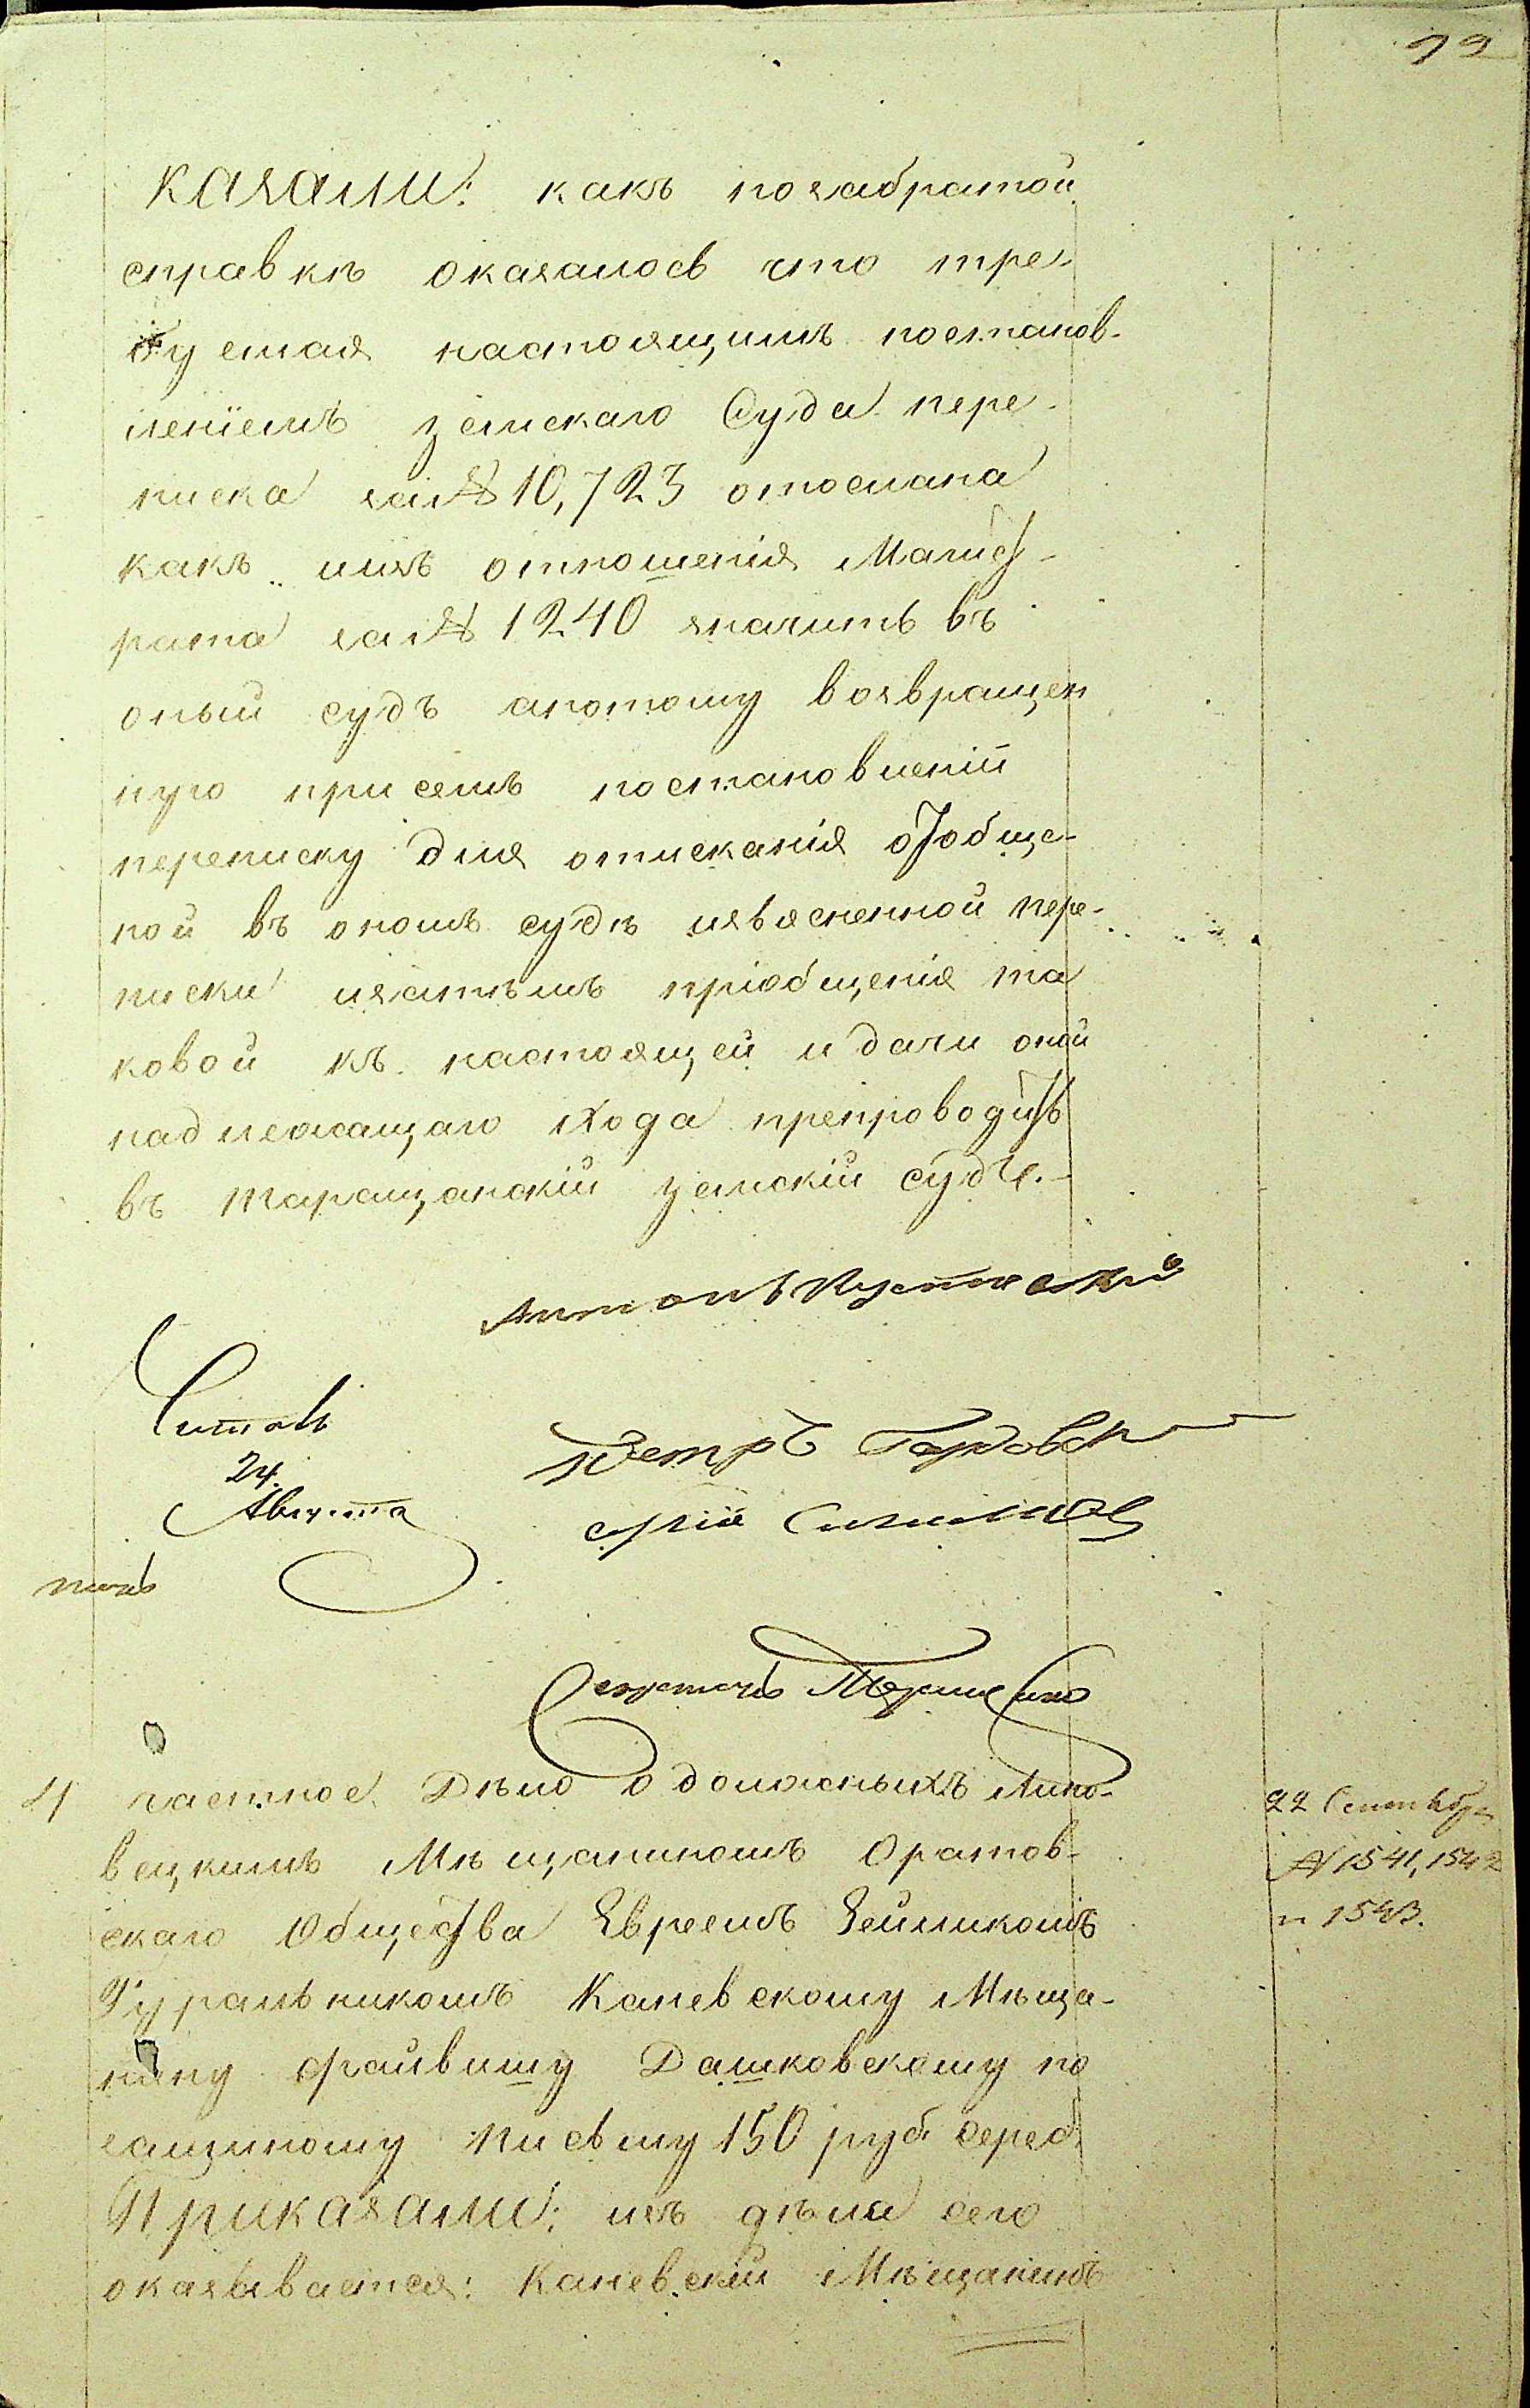 92
казали: какъ позабратой
справкѣ оказалось что тре-
буемая настоящимъ постанов-
леніемъ земскаго Суда пере-
писка за № 10,723 отослана
какъ изъ отношенія Магист-
рата за № 1240 значитъ въ
оный судъ апотому возвращен
ную при семъ постановленіи
переписку для отисканія отобще-
ной въ ономъ судѣ изъясненной пере-
писки изатѣмъ пріобщенія та
ковой къ настоящей и дачи оной
надлежащаго хода препроводить
въ таращанскій земскій судъ.-
Антонъ
Читалъ
24.
Августа
Петръ
Секретарь
4 частное Дѣло о должныхъ Липо-
вецкимъ Мѣщаниномъ Оратов-
скаго Общества Евреемъ Зейликомъ
Гуральникомъ Каневскому Мѣща-
нину Файвишу Дашковскому по
заемному письму 150 руб. сереб.
Приказали: изъ дѣла сего
оказывается: Каневскій Мѣщанинъ
22 Сентября
№ 1541, 1542
и 1543.